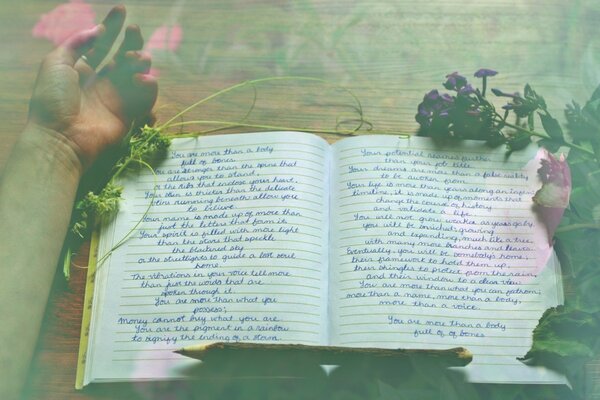 You are more than a body
full of bones.
You are stronger than the spine that
allows you to stand,
or the ribs that enclose your heart.
Your life is thicker than the delicate
veins running beneath allow you
to believe.
Your name is made up of more than
just the letters that form it.
Your spirit is filled with more light
than the stars that speckle
the blackened sky
or the streetlights to guide a lost soul
home.
The vibrations in your voice tell more
than just the words that are
spoken through it.
You are more than what you
possess;
Money cannot buy what you are.
You are the pigment in a rainbow
to signify the ending of a storm.
Your potential reaches further
than your bill.
Your dreams are more than a false reality
to be sold.
Your life is more than years along an
timeline, it is made up of moments that
change the course of history
and validate a life.
You will not grow weaker as years go by,
you will be enriched, growing
and expanding, much like a tree,
with many more branches and leaves.
Eventually, you will be somebody's home,
their framework to hold them up,
their shingles to protect from the rain,
and their window to a clear day.
You are more than what you can fathom,
more than a name, more than a body,
more than a voice.
You are more than a body
full of of bones.